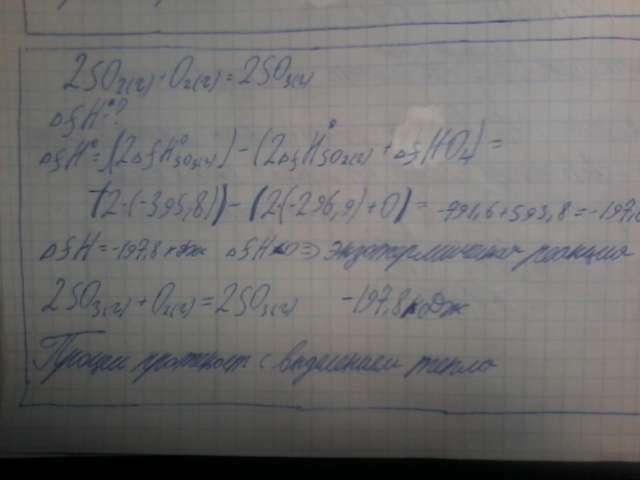 2SO₂(г) + O₂(г) = 2SO₃(г)
ΔfH°?
ΔfH° = (2ΔfH°SO₃(г)) - (2ΔfH°SO₂(г) + ΔfHO₂) =
(2·(-395,8)) - (2(-296,9)+0) = -791,6+593,8 = -197,
ΔfH = -197,8 кДж ΔfH<0 => экзотермическая реакция
2SO₂(г) + O₂(г) = 2SO₃(г) -197,8 кДж
Процес протекает с выделением тепла